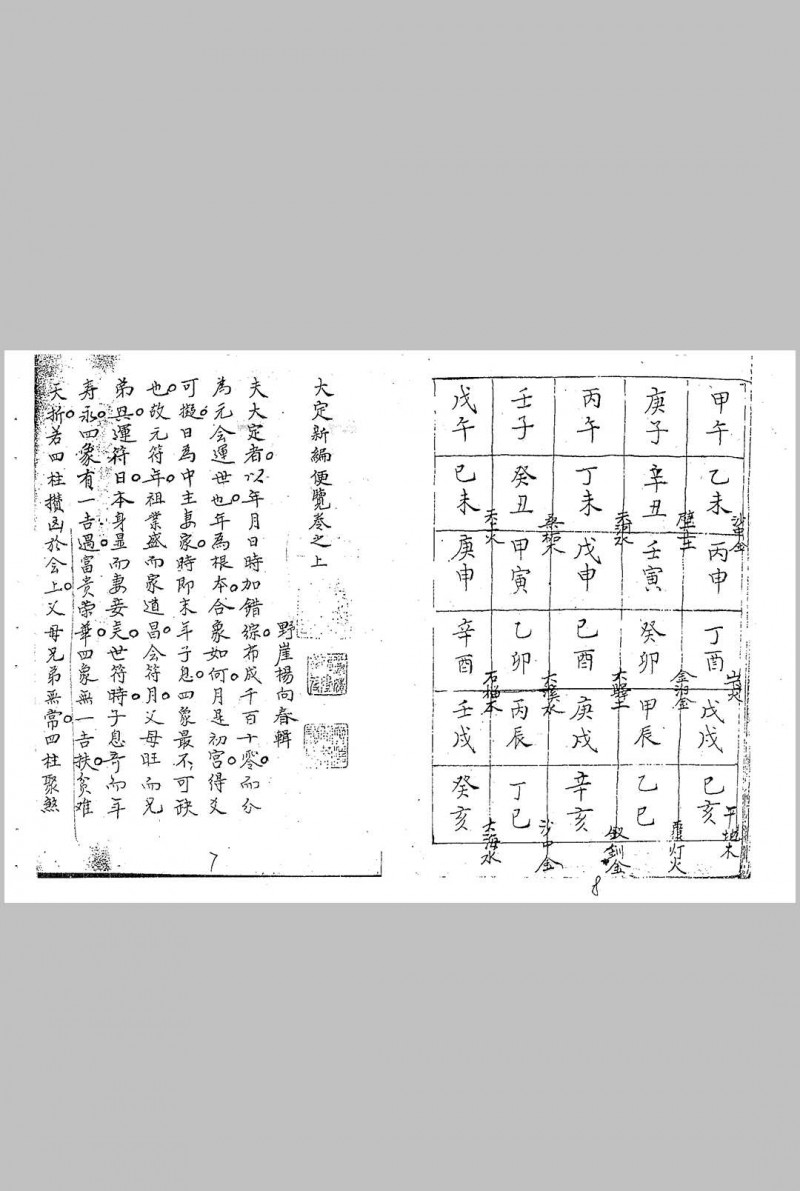 甲午 乙未 沙中金
丙申 丁酉 山下火
戊戌 己亥 平地木
庚子 辛丑 壁上土
壬寅 癸卯 金泊金
甲辰 乙巳 覆灯火
丙午 丁未 天河水
戊申 己酉 大驛土
庚戌 辛亥 釵釧金
壬子 癸丑 桑柘木
甲寅 乙卯 大溪水
丙辰 丁巳 沙中金
戊午 己未 天上火
庚申 辛酉 石榴木
壬戌 癸亥 大海水
8
大定新編便覽卷之上
野崖楊向春輯
夫大定者以年月日時加錯綜布成千百十零而分
為元会運世也年為根本合象如何月是初宮得爻
可擬日為中主妻家時即末年子息四象最不可缺
也故元符年祖業盛而家道昌会符月父母旺而兄
弟興運符日本身显而妻妾美世符時子息奇而年
寿永四象有一吉遇富貴荣華四象無一吉扶贫难
夭折若四柱攅凶於会上父母兄弟無常四柱聚煞
7